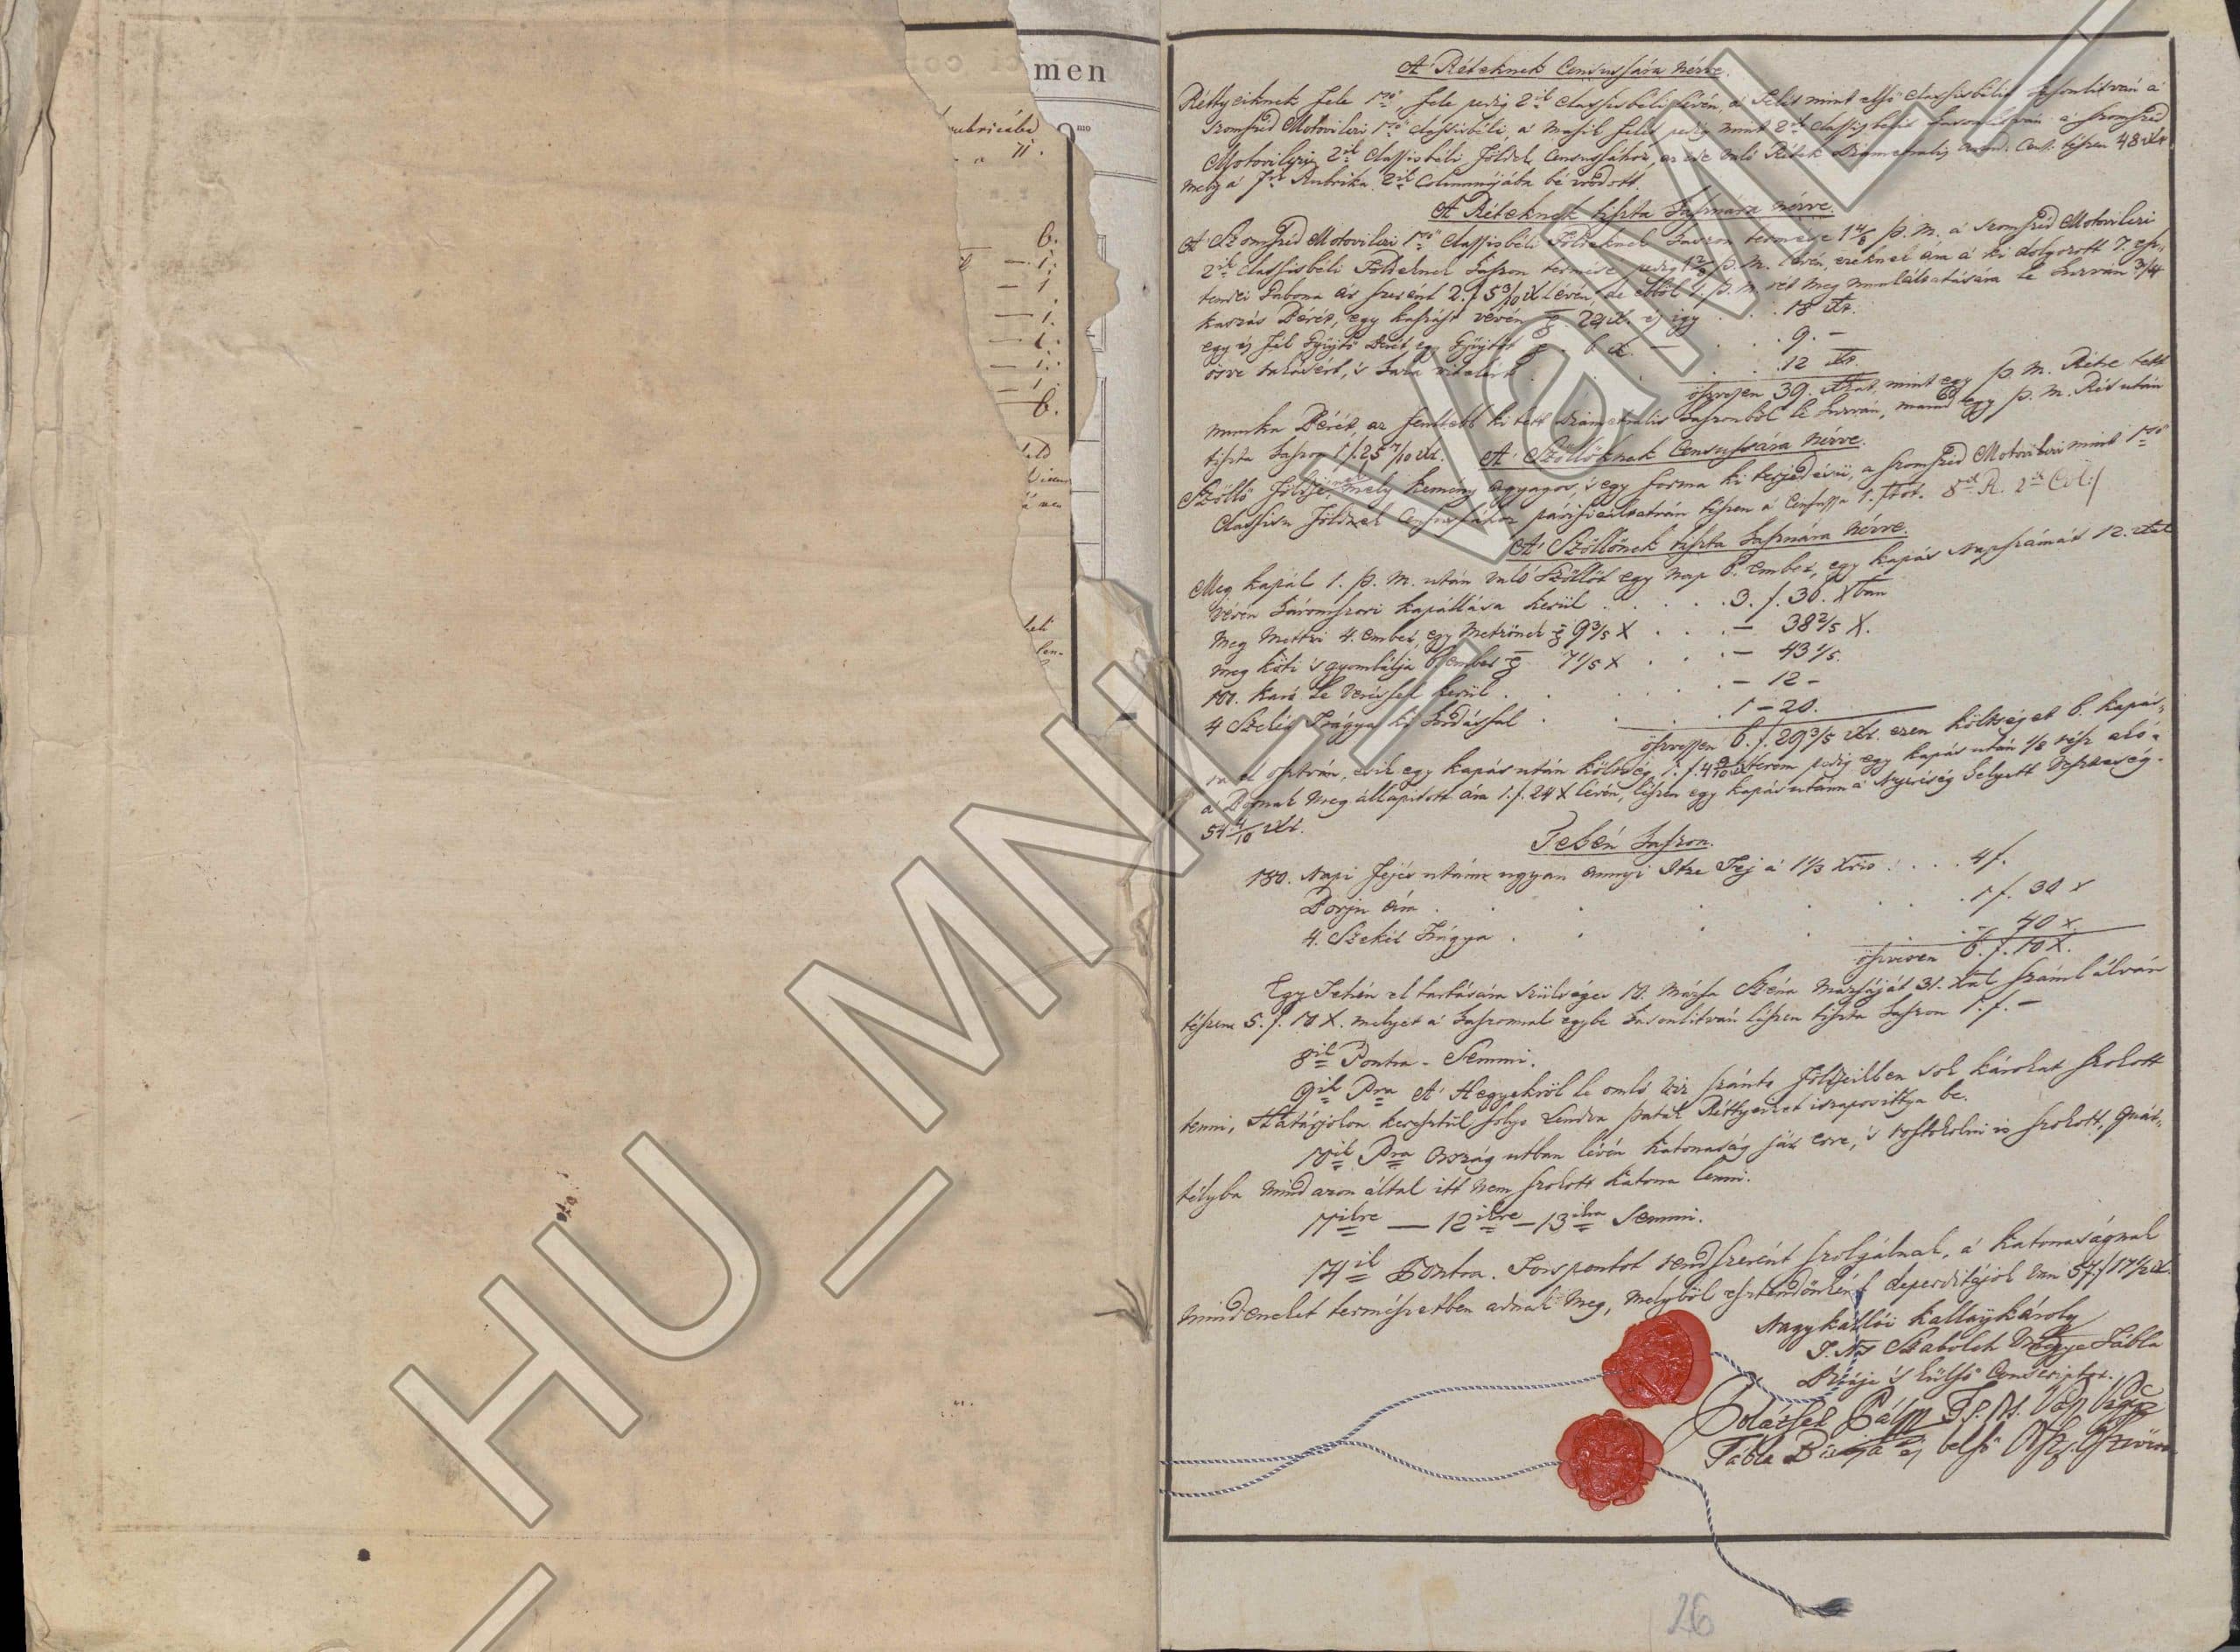 men
9mo
6.
— 1.
— 1
— 1.
— 1.
— 1.
— 1.
6.
A' Réteknek Censussára nézve.
Réttyeiknek fele 1mo, fele pedig 2ik Classisbéli lévén, a' felit mint elsö Classisbélit hasonlitván a'
szomszéd Motovilczi 1mo Classisbéli, a' másik felét pedig mint 2ik Classisbélit hasonlitván a' szomszéd
2ik Classisbéli Földek Censussához, az ide való Rétek 48 xr
mely a' 7ik Rubrika 2ik Columnájába bé iródott.
A' Réteknek tiszta hasznára nézve.
A' Szomszéd Motovilczi 1mo Classisbéli Földeknek haszon termése 1 4/8 P. M. a' szomszéd Motovilczi
2ik Classisbéli Földeknek haszon termése pedig 1 2/8 P. M. lévén, ezeknek ára a' ki dolgozott 7. esz-
tendei Gabona ár szerént 2. f. 5 3/10 x lévén, de ebböl 1. P. M. rét meg munkáltatására le huzván 3/4
kaszás Bérét, egy kaszást vévén 24 x. és igy . . . 18 xr.
egy és fél Gyüjtö Bérét egy Gyüjtöt 6 x. — . . . 9. —
öszve rakásért, 's haza vitelért . . . . 12 xr.
öszvesen 39. xrat, mint egy P. M. Rétre tett
munka Bérét az fentebb ki tett haszonból le huzván, marad egy P. M. Rét után
tiszta haszon 1 f. 25 7/10 xr. A' Szöllöknek Censussára nézve.
Szöllö földje, mely kemény agyagos, 's egy forma ki terjedésü, a' szomszéd Motovilczi mint 1mo
Classisu Földnek Censussához tészen a' Censussa 1. frtot. 8ik R. 2ik Col:/
A' Szöllönek tiszta hasznára nézve.
Meg kapál 1. P. M. után való Szöllöt egy nap 6. ember, egy kapás Napszámát 12. xrt
vévén háromszori kapállása kerül . . . . . 3. f. 36. xban
Meg Mettzi 4. ember, egy Metzönek 9 3/5 X . . . . — 38 2/5 X.
Meg köti 's gyomlálja 6 ember 7 1/5 x . . . — 43 1/5.
100. karó le veréssel kerül . . . . . . — 12 —
4 Szekér Trágya ki hordással . . . . 1 — 20.
öszvessen 6. f. 29 3/5 xr. ezen költséget 6. kapás-
ra el osztván, esik egy kapás után költség 1. f. 4 9/10 x terem pedig egy kapás után 1/8 rész akó.
a' Bornak meg állapitott ára 1. f. 24 x lévén, lészen egy kapás utánn a' Nyereség helyett Veszteség.
54 4/10 xr.
Tehén haszon.
180. Napi fejés utánn ugyan annyi Itze Tej a' 1 1/3 xrto . . . . 4 f.
Borju ára . . . . . . 1 f. 30 x
4. Szekér Trágya . . . . . — 40 x.
öszvesen 6. f. 10 X.
Egy Tehén el tartására szükséges 10. Mázsa Széna Mázsáját 31. Xral számlálván
tészen 5. f. 10 X. melyet a' haszonnal egybe hasonlitván lészen tiszta haszon 1. f. —
8ik Pontra - Semmi.
9ik Pra A' Hegyekröl le omló Viz szántó földjeikben sok károkat szokott
tenni, Határjokon keresztül folyo Lendva patak Réttyeiket iszaposittya be.
10ik Pra Ország utban lévén Katonaság jár erre, 's is szokott, Quár-
télyba mind azon által itt nem szokott Katona lenni.
11ikre — 12ikre — 13ikra Semmi.
14ik Pontra. Forspontot rendszerént szolgálnak, a' Katonaságnak
mindeneket természetben adnak meg, melyböl esztendönként deperditájok van 57. f. 17 1/2 xr.
Nagykállói Kallay károly
T. Ns Szabolch Vármegye Tábla
Birája 's külsö Conscriptor.
Pálm T. N. Vas Vgye
Tábla Birája és belsö
26
HU_MNL_VaML